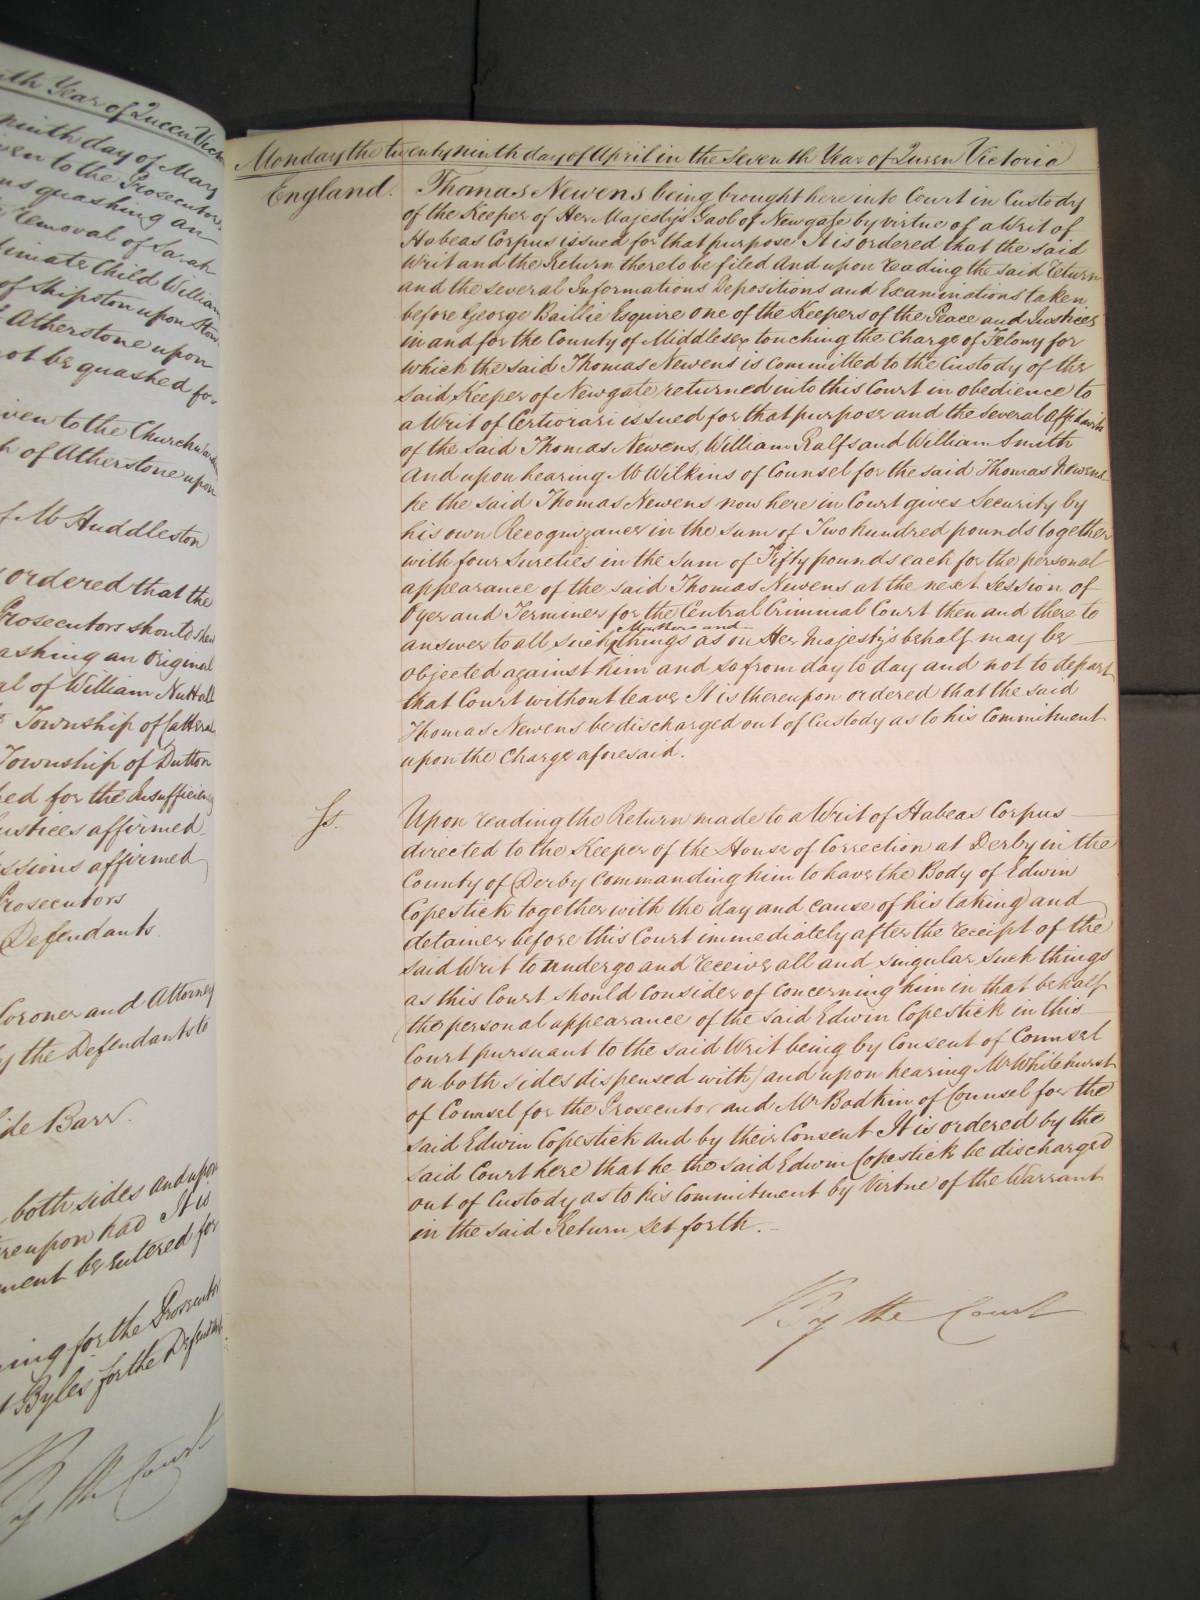 th Year of Queen Vict
ninth day of May
ven to the Prosecutors
ns quashing an
removal of Sarah
timate Child William
of Shipston upon Stour
Atherstone upon
not be quashed for
ven to the Churchwardens
h of Atherstone upon
f Mr Huddleston
ordered that the
Prosecutors should show
ashing an Original
al of William Nuttall
Township of Catteral
Township of Dutton
hed for the Insufficiency
ustices affirmed
ssions affirmed
Prosecutors
Defendants.
Coroner and Attorney
by the Defendants to
ide Barr.
both sides and upon
reupon had It is
ment be entered for
ing for the Prosecutor
Byles for the Defendant
By the Court
Monday the twenty ninth day of April in the Seventh Year of Queen Victoria
England. Thomas Newens being brought here into Court in Custody
of the Keeper of Her Majesty's Gaol of Newgate by virtue of a Writ of
Habeas Corpus issued for that purpose It is ordered that the said
Writ and the Return thereto be filed And upon reading the said return
and the several Informations Depositions and Examinations taken
before George Baillie Esquire one of the Keepers of the Peace and Justices
in and for the County of Middlesex touching the Charge of Felony for
which the said Thomas Newens is committed to the Custody of the
said Keeper of Newgate returned into this Court in obedience to
a Writ of Certiorari issued for that purpose and the several affidavits
of the said Thomas Newens, William Ralfs and William Smith
And upon hearing Mr Wilkins of Counsel for the said Thomas Newens
he the said Thomas Newens now here in Court gives Security by
his own Recognizance in the sum of Two hundred pounds together
with four Sureties in the Sum of Fifty pounds each for the personal
appearance of the said Thomas Newens at the next Session of
Oyer and Terminer for the Central Criminal Court then and there to
Matters and
answer to all such things as on Her Majesty's behalf may be
objected against him and so from day to day and not to depart
that Court without leave It is thereupon ordered that the said
Thomas Newens be discharged out of Custody as to his Commitment
upon the Charge aforesaid.
Ss. Upon reading the Return made to a Writ of Habeas Corpus
directed to the Keeper of the House of Correction at Derby in the
County of Derby Commanding him to have the Body of Edwin
Copestick together with the day and cause of his taking and
detainer before this Court immediately after the receipt of the
said Writ to undergo and receive all and singular such things
as this Court should consider of concerning him in that behalf
(the personal appearance of the said Edwin Copestick in this
Court pursuant to the said Writ being by Consent of Counsel
on both sides dispensed with) and upon hearing Mr Whitehurst
of Counsel for the Prosecutor and Mr Bodkin of Counsel for the
said Edwin Copestick and by their Consent It is ordered by the
said Court here that he the said Edwin Copestick be discharged
out of Custody as to his Commitment by Virtue of the Warrant
in the said Return set forth.
By the Court